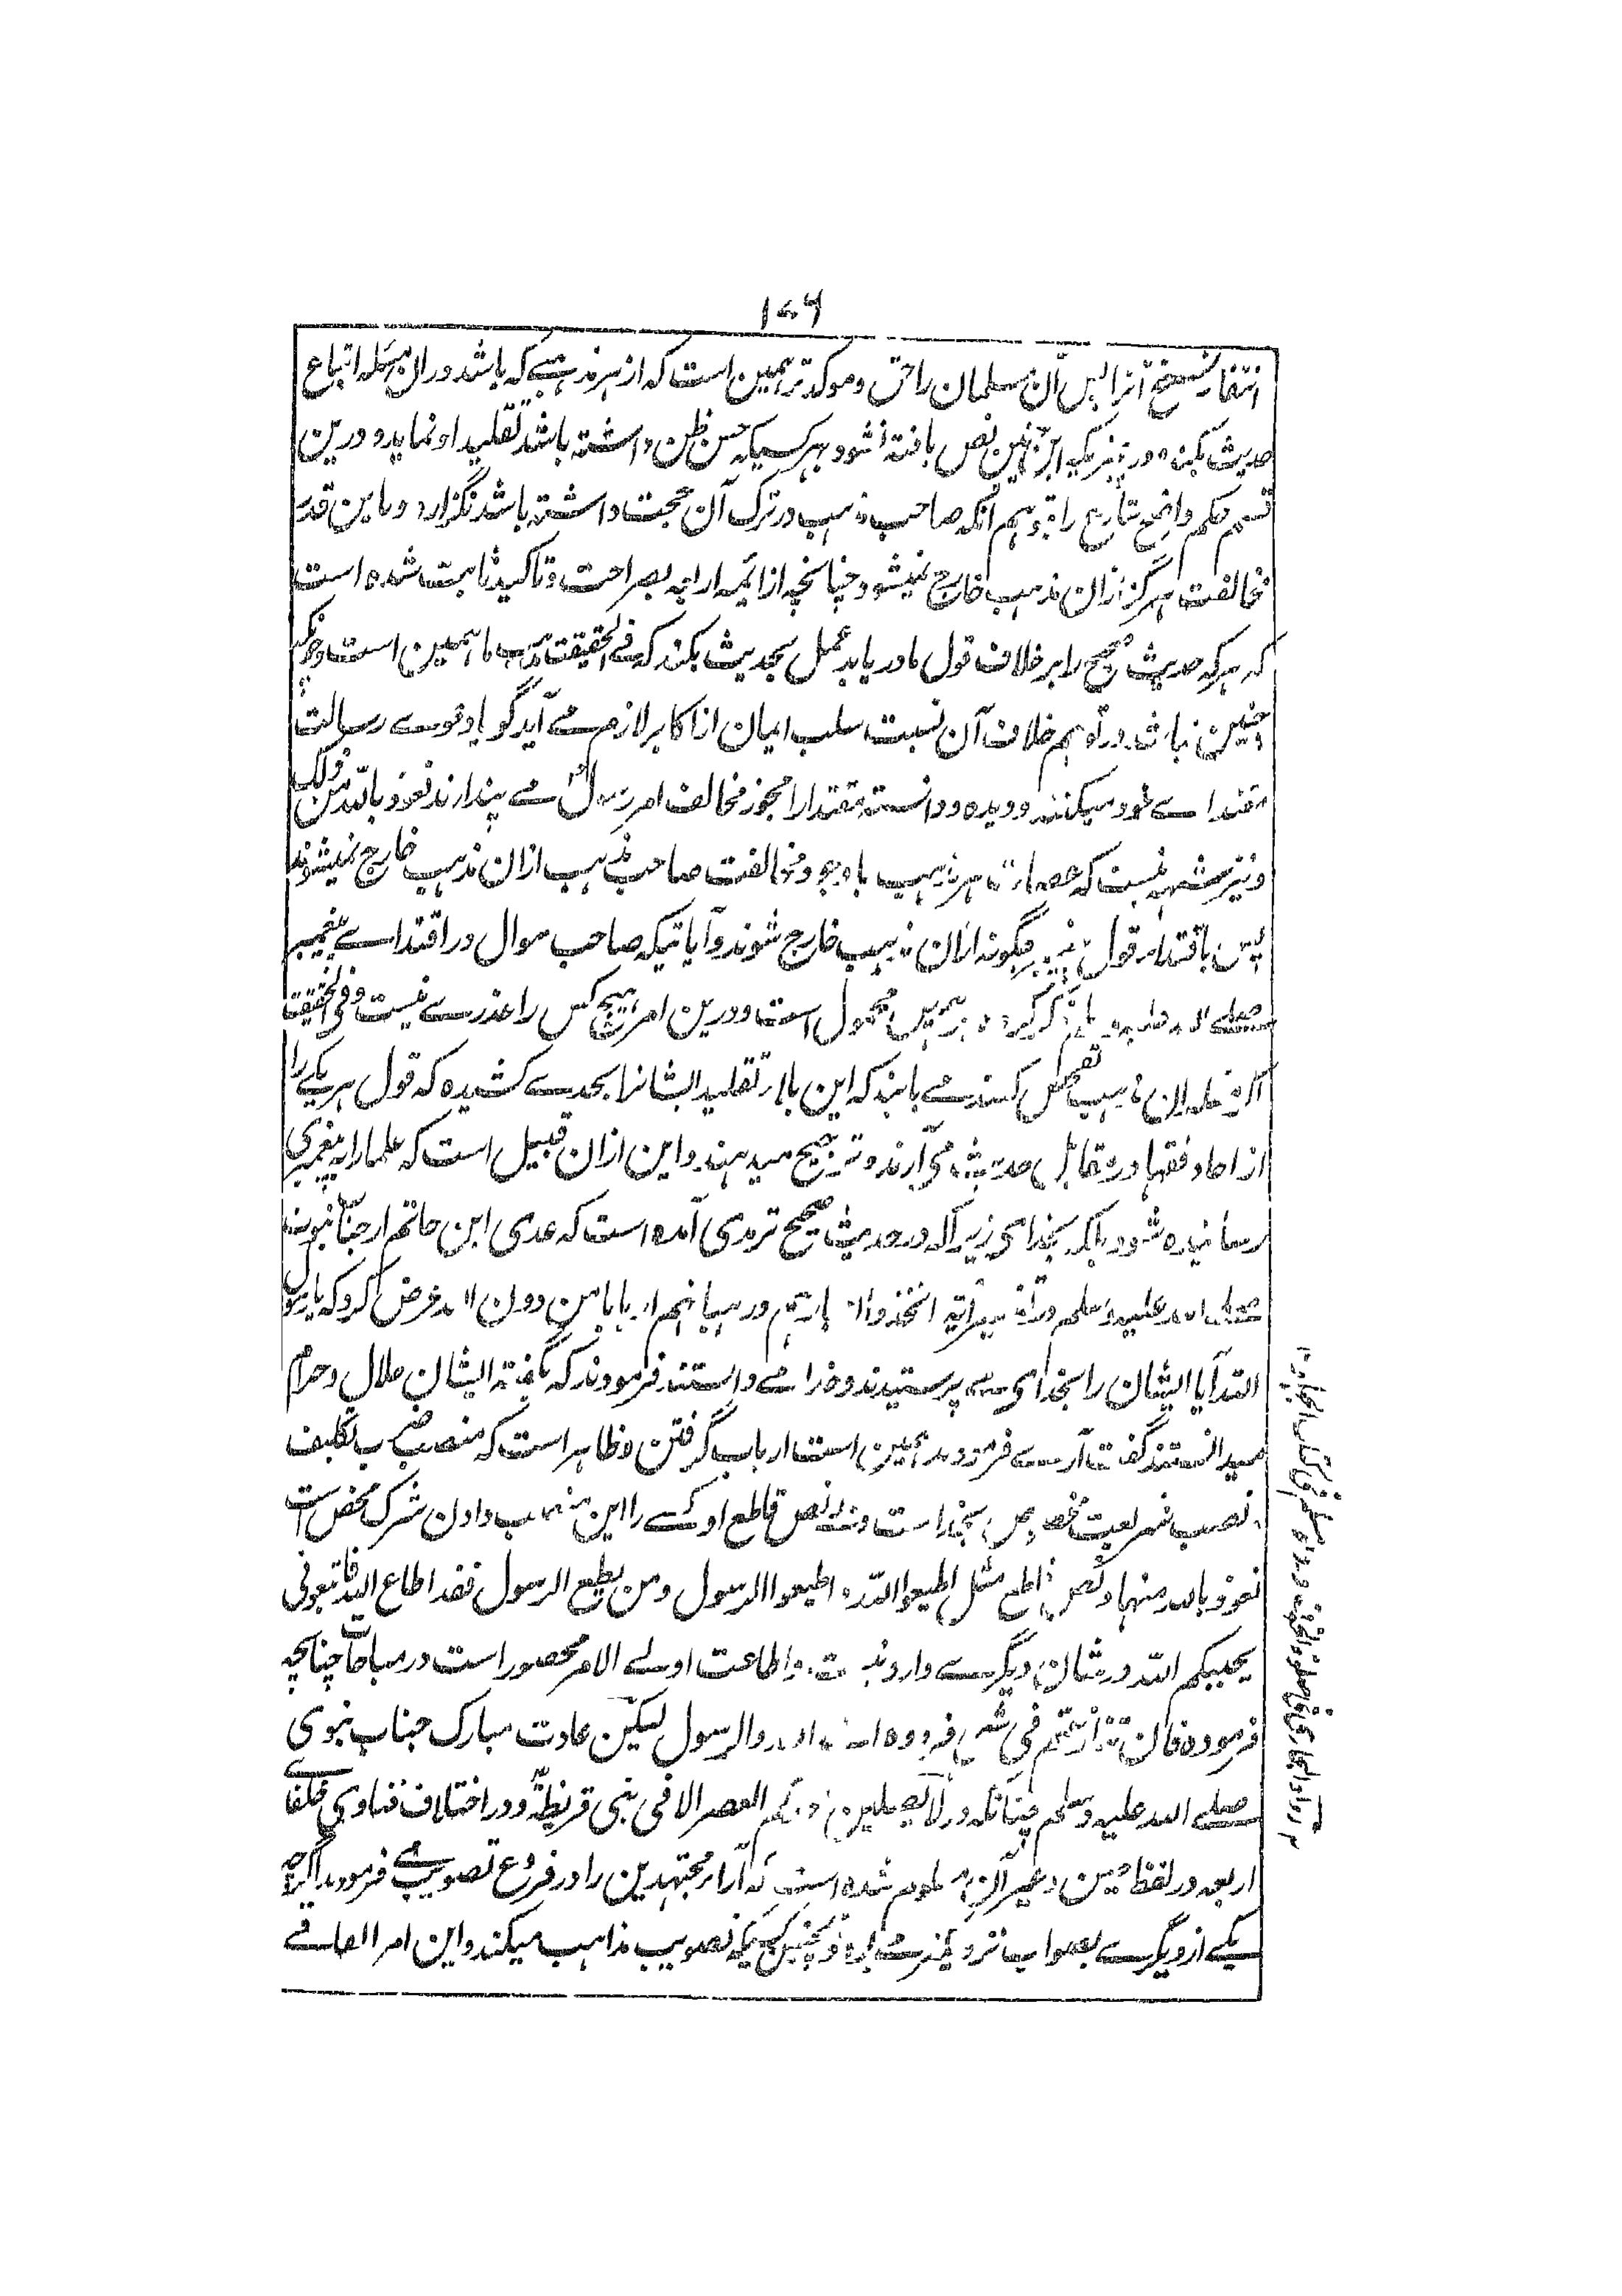 ۱۷۶
انتفار نسخ آنرا پس آن مسلمان را حق و موکد تر همین است که از هر مذهبے که باشد در ان مسئله اتباع
حدیث بکند و در چیزیکه این چنین نص یافته نشود بهر کسیکه حسن ظن داشته باشد تقلید او نماید و درین
قسم حکم واضح شارع را بتوهم آنکه صاحب مذهب در ترک آن حجت داشته باشد نگزارد و باین قدر
مخالفت هرگز ازان مذهب خارج نمیشود چنانچه از ائمه اربعه بصراحت و تاکید ثابت شده است
که هر که حدیث صحیح را بر خلاف قول ما در یابد عمل بحدیث بکند که فے الحقیقت مذهب ما همین است و اگر
چنین نباشد در توهم خلاف آن نسبت سلب ایمان از اکابر لازم مے آید گویا دعوے رسالت
مقتداے خود میکنند و دیده و دانسته مقتدا را مجوز مخالف امر رسول مے پندارند نعوذ بالله من ذلک
و نیز مشتبه نیست که هر مذهب باوجود مخالفت صاحب مذهب ازان مذهب خارج نمیشوند
پس باقتداے قول پیغمبر چگونه ازان مذهب خارج شوند و آیا تیکه صاحب سوال در اقتداے پیغمبر
صلے الله علیه وسلم ذکر کرده بر همین محمول است و درین امر هیچ کس را عذرے نیست و فی الحقیقت
اگر مذهب تفحص کنند مے یابند که این بار تقلید ایشانرا بحدے کشیده که قول هر یکے را
از احاد فقها در مقابل حدیث می آرند و ترجیح میدهند و این ازان قبیل است که علما را به پیغمبری
رسانیده شود بلکه بخدای زیرا که در حدیث صحیح ترمذی آمده است که عدی ابن حاتم از جناب نبوت
صلے الله علیه وسلم در تفسیر آیة اتخذوا احبارهم و رهبانهم اربابا من دون الله عرض کرد که یا رسول
الله آیا ایشان را بخدای مے پرستیدند و خدا مے دانستند فرمودند که بگفته ایشان حلال و حرام
میدانستند گفت آرے فرمودند همین است ارباب گرفتن و ظاهر است که منصب ضرب تکلیف
و نصب شریعت مخصوص بخدا است و نص قاطع او کسے را این منصب دادن شرک محض است
نعوذ بالله منها و نص قاطع مثل اطیعوا الله و اطیعوا الرسول و من یطع الرسول فقد اطاع الله فاتبعونی
یحببکم الله در شان دیگرے وارد نیست و اطاعت اولے الامر محصور است در مباحات چنانچه
فرموده فان تنازعتم فی شیء فردوه الے الله والرسول لیکن عادت مبارک جناب نبوی
صلے الله علیه وسلم چنانکه در لا یصلین احدکم العصر الا فی بنی قریظة و در اختلاف فتاوی خلفاے
اربعه در لفظ و غیر آن معلوم شده است که آراء مجتهدین را در فروع تصویب مے فرمودند اگرچه
یکے از دیگرے بصواب نزدیکتر همچنین تصویب مذاهب میکند و این امر الصافے